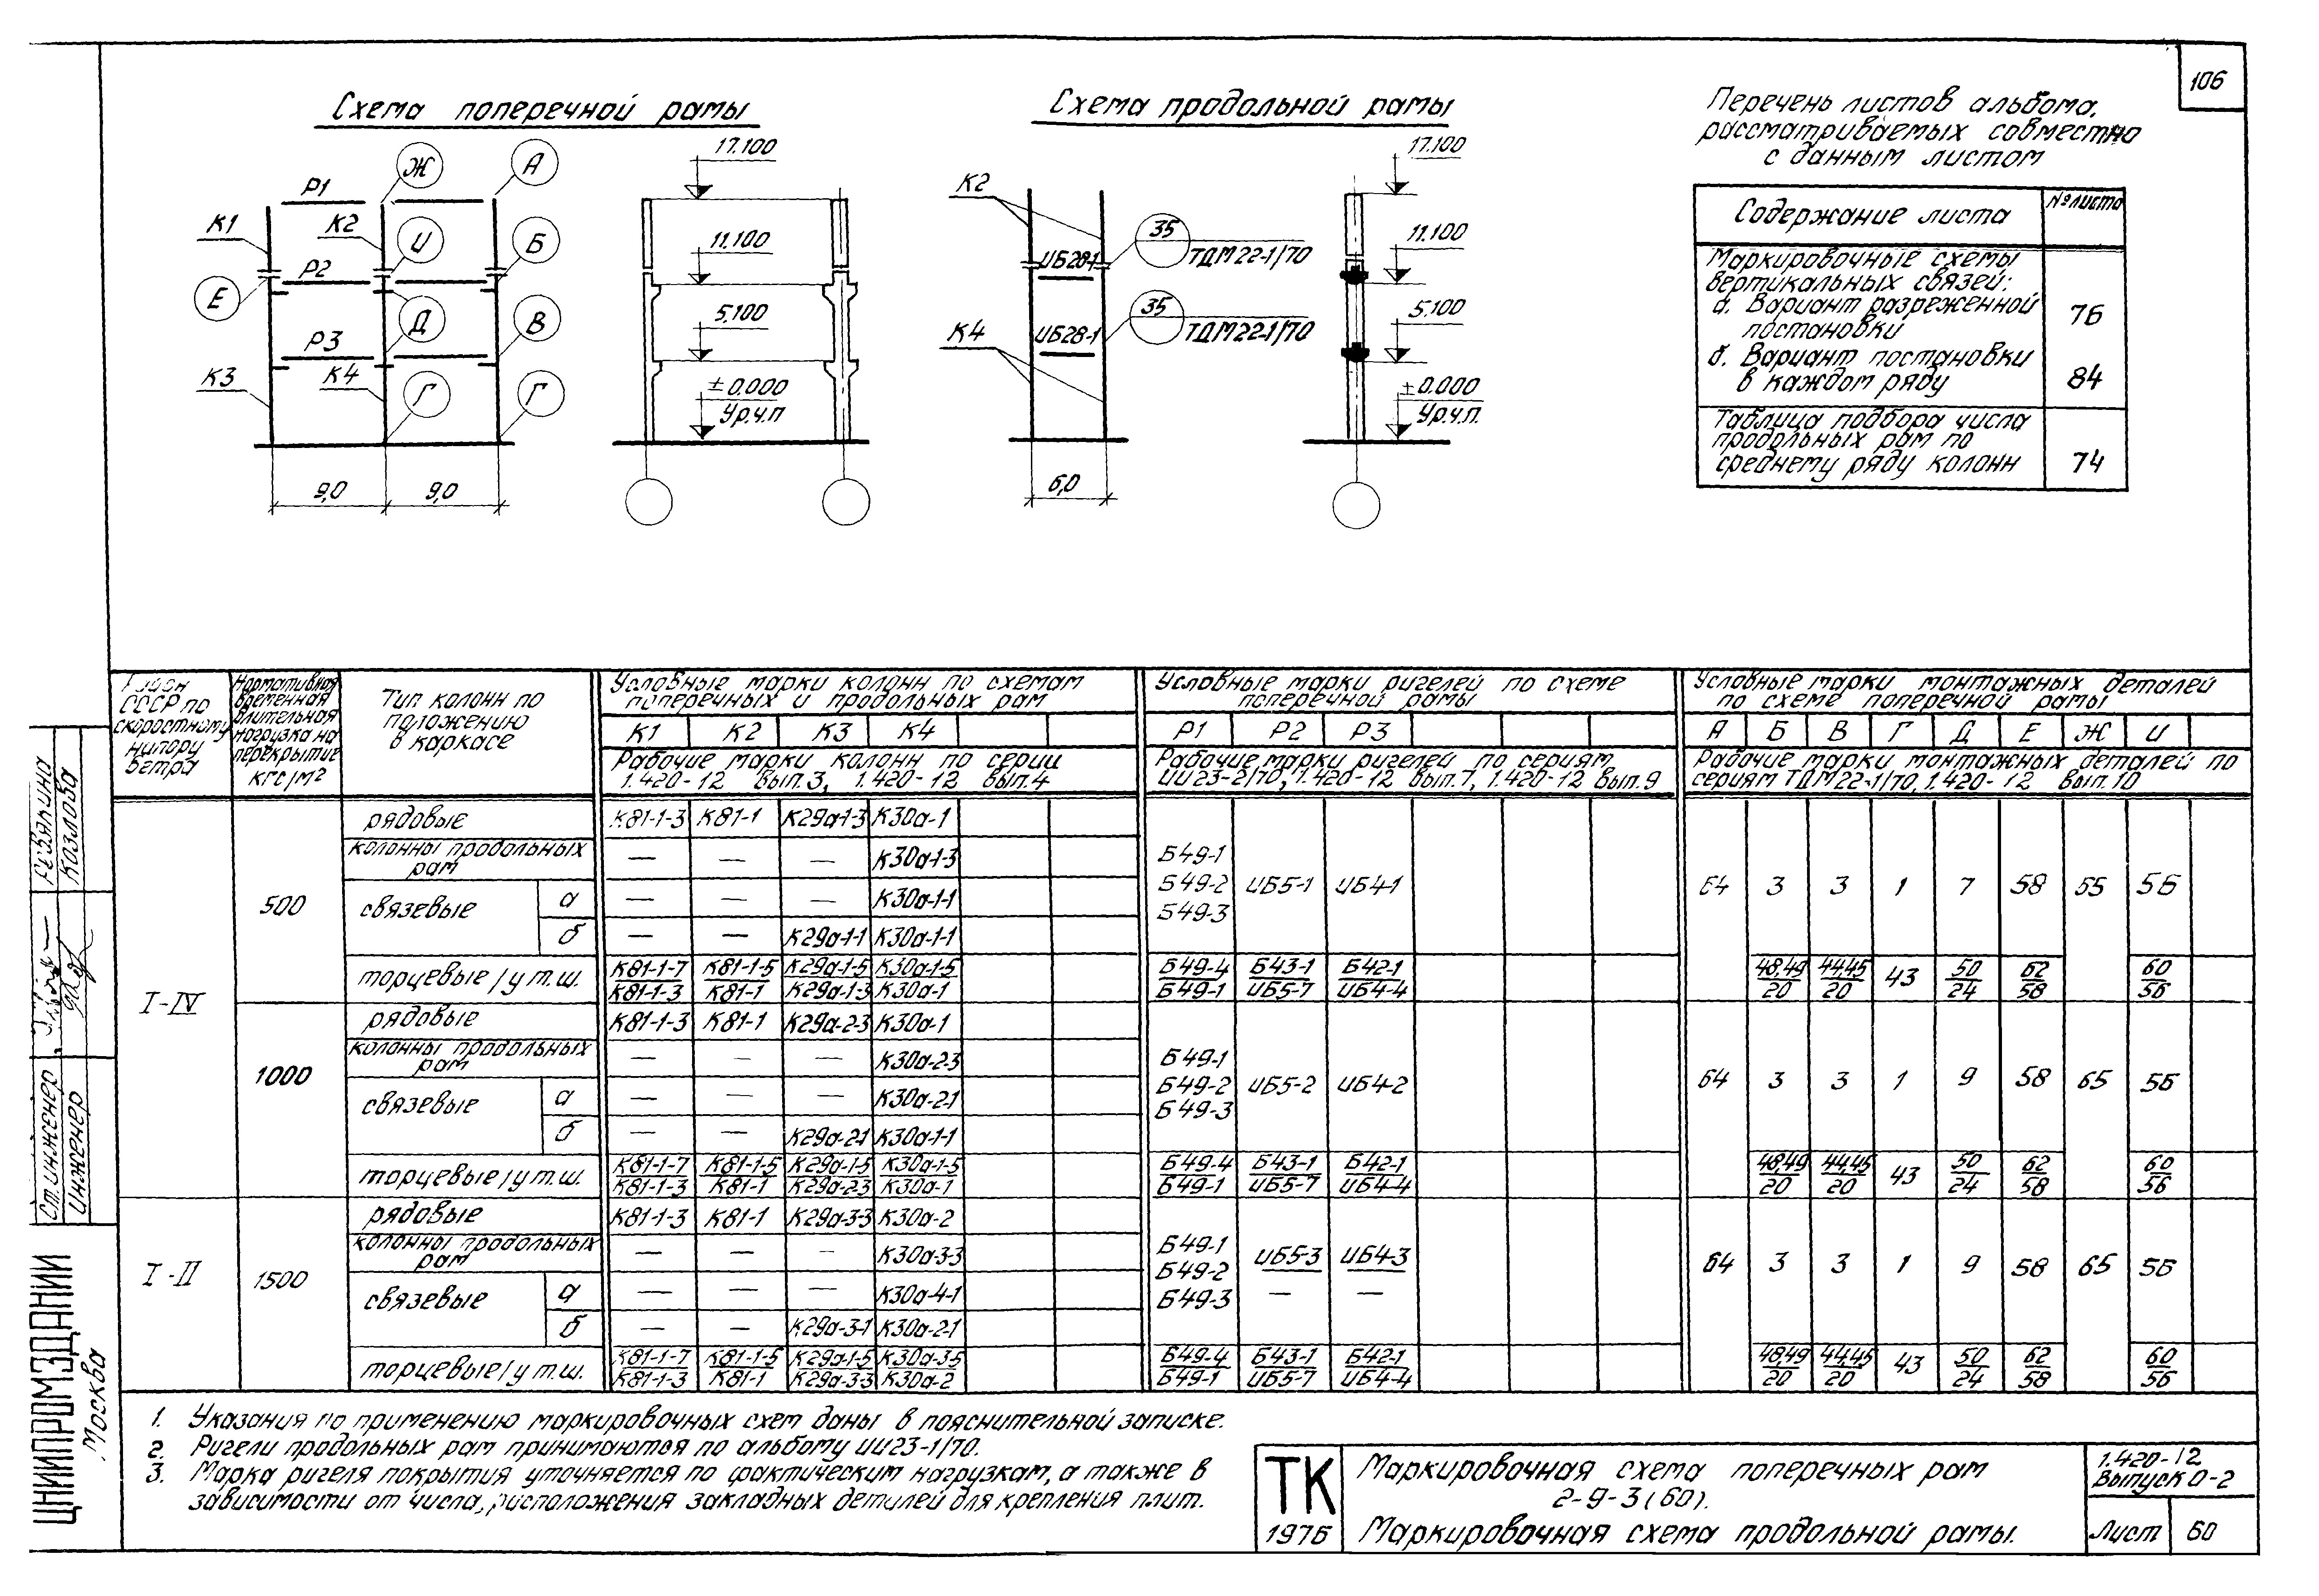 106
Схема поперечной рамы
Схема продольной рамы
Перечень листов альбома,
рассматриваемых совместно
с данным листом
Содержание листа | № листа
Маркировочные схемы
вертикальных связей:
а. Вариант разреженной
постановки | 76
б. Вариант постановки
в каждом ряду | 84
Таблица подбора числа
продольных рам по
среднему ряду колонн | 74
Ж А
Р1
К1 К2 И Б
Р2
Е Д В
Р3
К3 К4 Г Г
9,0 9,0
17.100
11.100
5.100
±0.000
Ур.ч.п
К2
35
ИБ28-1 ТДМ22-1/70
35
К4 ИБ28-1 ТДМ22-1/70
6,0
17.100
11.100
5.100
±0.000
Ур.ч.п.
Район СССР по скоростному напору ветра
Нормативная временная длительная нагрузка на перекрытие кгс/м²
Тип колонн по положению в каркасе
Условные марки колонн по схемам
поперечных и продольных рам
К1 К2 К3 К4
Рабочие марки колонн по серии
1.420-12 вып.3, 1.420-12 вып.4
Условные марки ригелей по схеме
поперечной рамы
Р1 Р2 Р3
Рабочие марки ригелей по сериям
ИИ23-2/70, 1.420-12 вып.7, 1.420-12 вып.9
Условные марки монтажных деталей
по схеме поперечной рамы
А Б В Г Д Е Ж И
Рабочие марки монтажных деталей по
сериям ТДМ22-1/70, 1.420-12 вып.10
I-IV
500
рядовые К81-1-3 К81-1 К29а-1-3 К30а-1
колонны продольных рам — — — К30а-1-3
связевые а — — — К30а-1-1
б — — К29а-1-1 К30а-1-1
Б49-1
Б49-2 ИБ5-1 ИБ4-1
Б49-3
64 3 3 1 7 58 65 56
торцевые/у т.ш. К81-1-7/К81-1-3 К81-1-5/К81-1 К29а-1-5/К29а-1-3 К30а-1-5/К30а-1 Б49-4/Б49-1 Б43-1/ИБ5-7 Б42-1/ИБ4-4 48,49/20 44,45/20 43 50/24 62/58 60/56
1000
рядовые К81-1-3 К81-1 К29а-2-3 К30а-1
колонны продольных рам — — — К30а-2-3
связевые а — — — К30а-2-1
б — — К29а-2-1 К30а-1-1
Б49-1
Б49-2 ИБ5-2 ИБ4-2
Б49-3
64 3 3 1 9 58 65 56
торцевые/у т.ш. К81-1-7/К81-1-3 К81-1-5/К81-1 К29а-1-5/К29а-2-3 К30а-1-5/К30а-1 Б49-4/Б49-1 Б43-1/ИБ5-7 Б42-1/ИБ4-4 48,49/20 44,45/20 43 50/24 62/58 60/56
I-II
1500
рядовые К81-1-3 К81-1 К29а-3-3 К30а-2
колонны продольных рам — — — К30а-3-3
связевые а — — — К30а-4-1
б — — К29а-3-1 К30а-2-1
Б49-1
Б49-2 ИБ5-3/— ИБ4-3/—
Б49-3
64 3 3 1 9 58 65 56
торцевые/у т.ш. К81-1-7/К81-1-3 К81-1-5/К81-1 К29а-1-5/К29а-3-3 К30а-3-5/К30а-2 Б49-4/Б49-1 Б43-1/ИБ5-7 Б42-1/ИБ4-4 48,49/20 44,45/20 43 50/24 62/58 60/56
1. Указания по применению маркировочных схем даны в пояснительной записке.
2. Ригели продольных рам принимаются по альбому ИИ23-1/70.
3. Марка ригеля покрытия уточняется по фактическим нагрузкам, а также в
зависимости от числа, расположения закладных деталей для крепления плит.
ТК
1976
Маркировочная схема поперечных рам
2-9-3(60).
Маркировочная схема продольной рамы.
1.420-12
Выпуск 0-2
Лист 60
Ст. инженер Ревякина
Инженер Козлова
ЦНИИПРОМЗДАНИЙ
Москва